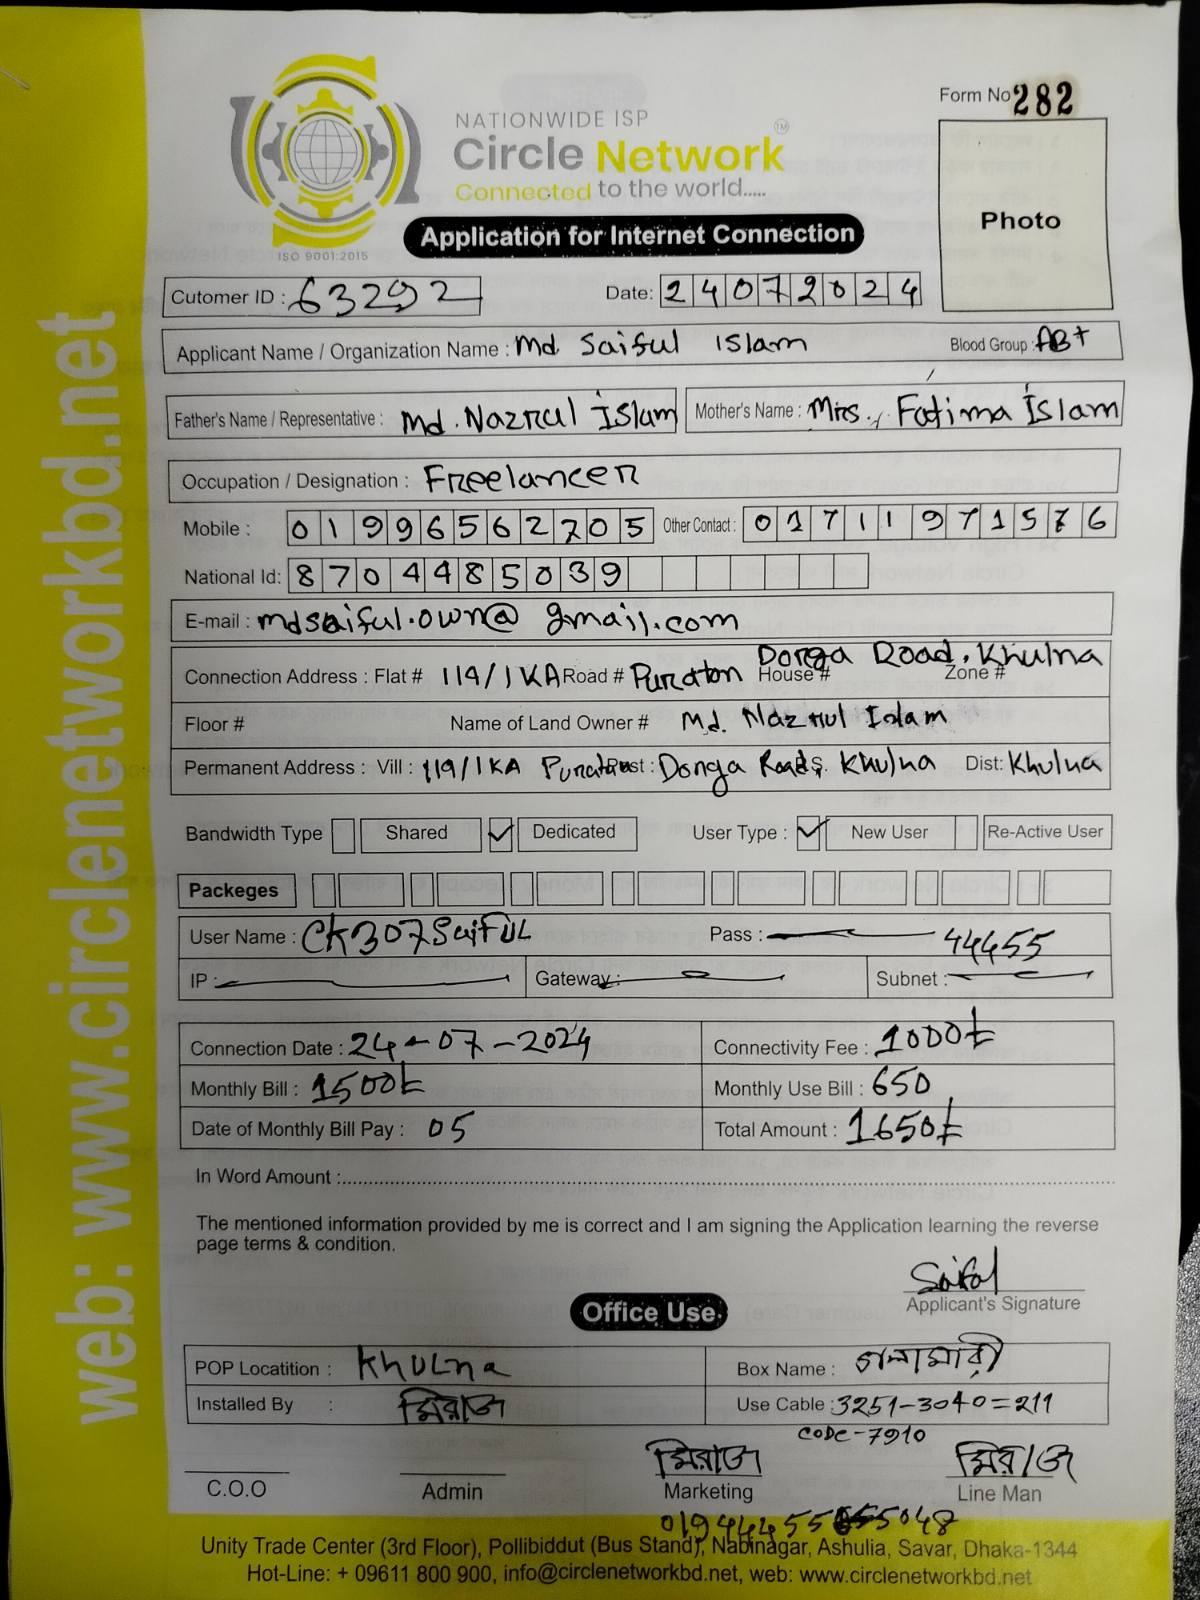 Form No 282
NATIONWIDE ISP
Circle Network TM
Connected to the world.....
ISO 9001:2015
Photo
Application for Internet Connection
Cutomer ID : 63292 Date: 24072024
Applicant Name / Organization Name : Md Saiful Islam Blood Group : AB+
Father's Name / Representative : Md. Nazrul Islam Mother's Name : Mrs. Fatima Islam
Occupation / Designation : Freelancer
Mobile : 01996562705 Other Contact : 01711971576
National Id: 8704485039
E-mail : mdsaiful.own@gmail.com
Connection Address : Flat # 119/1KA Road # Puraton House # Dorga Road, Khulna Zone #
Floor # Name of Land Owner # Md. Nazrul Islam
Permanent Address : Vill : 119/1KA Puratan Post : Dorga Road, Khulna Dist: Khulna
Bandwidth Type Shared ✓ Dedicated User Type : ✓ New User Re-Active User
Packeges
User Name : CK307Saiful Pass : 44455
IP : Gateway : Subnet :
Connection Date : 24-07-2024 Connectivity Fee : 1000৳
Monthly Bill : 1500৳ Monthly Use Bill : 650
Date of Monthly Bill Pay : 05 Total Amount : 1650৳
In Word Amount :
The mentioned information provided by me is correct and I am signing the Application learning the reverse
page terms & condition.
Saiful
Applicant's Signature
Office Use
POP Locatition : Khulna Box Name : গল্লামারী
Installed By : মিরাজ Use Cable : 3251-3040=211
CODE-7910
মিরাজ মিরাজ
C.O.O Admin Marketing Line Man
Unity Trade Center (3rd Floor), Pollibiddut (Bus Stand), Nabinagar, Ashulia, Savar, Dhaka-1344
Hot-Line: + 09611 800 900, info@circlenetworkbd.net, web: www.circlenetworkbd.net
web: www.circlenetworkbd.net